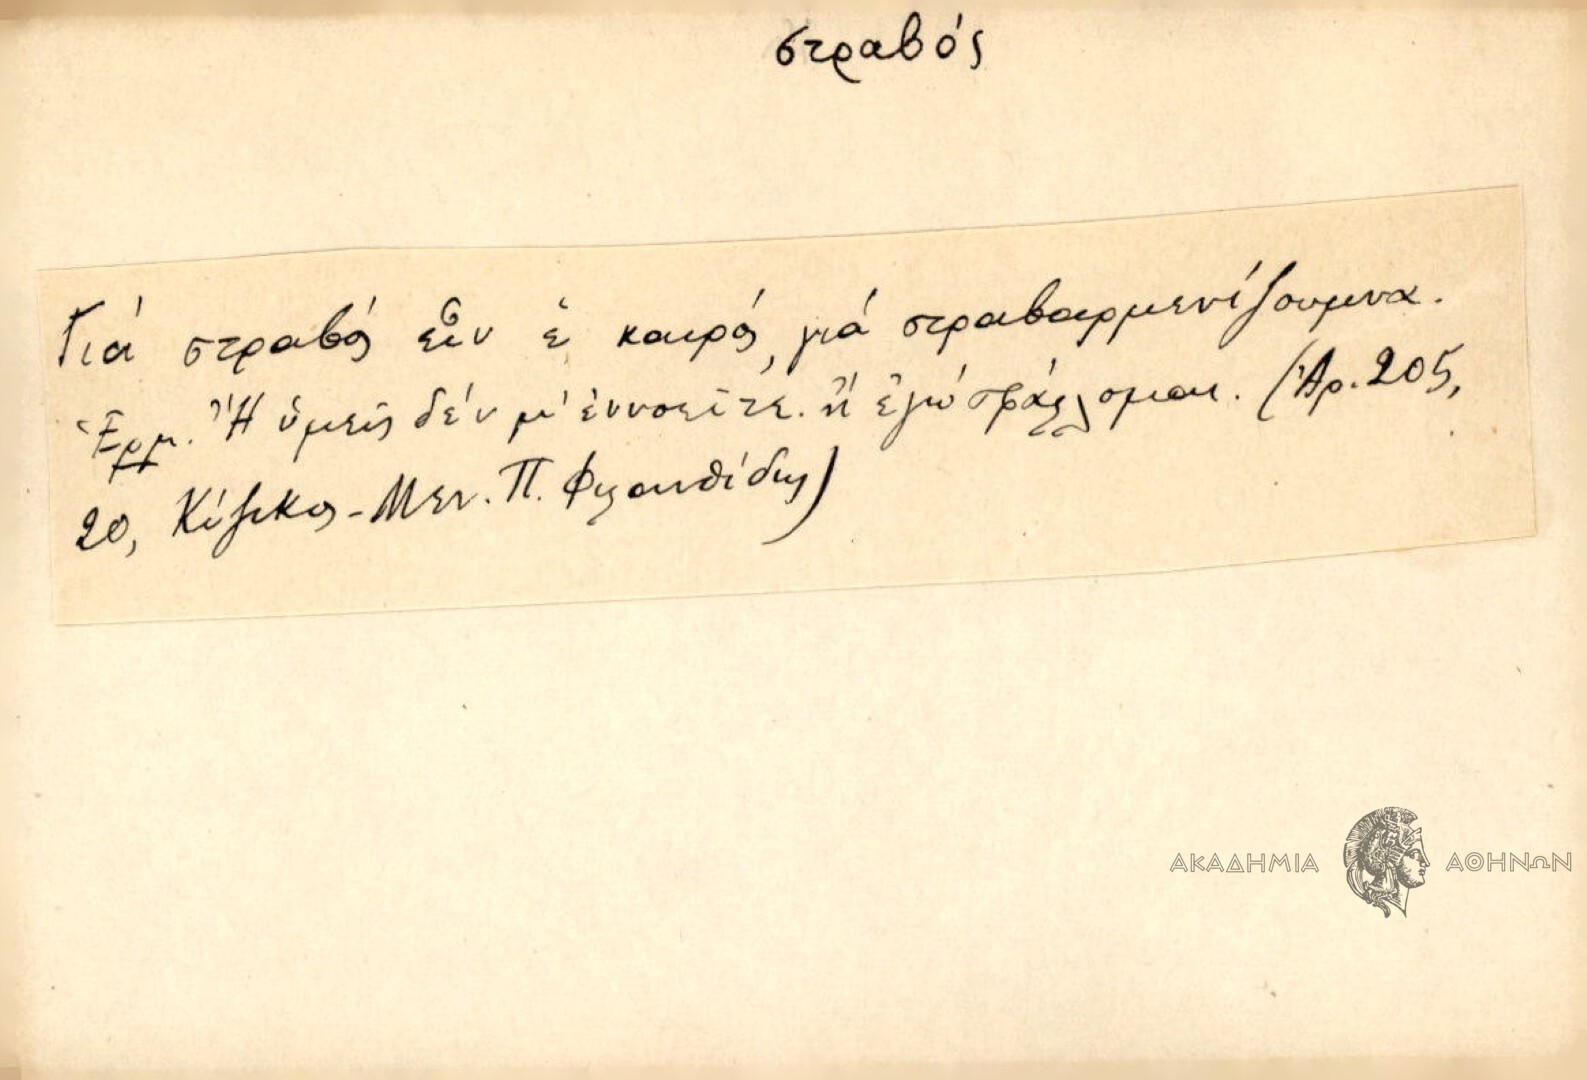 στραβός
Γιά στραβός εἶν ἑ καιρός, γιά στραβαρμενίζουμνα.
Ἑρμ. Ἢ ὑμεῖς δέν μ' ἐννοεῖτε. ἤ ἐγώ σφάλλομαι. (Ἀρ. 205,
20, Κύζικος - Μεν. Π. Φιλανθίδης)
ΑΚΑΔΗΜΙΑ ΑΘΗΝΩΝ